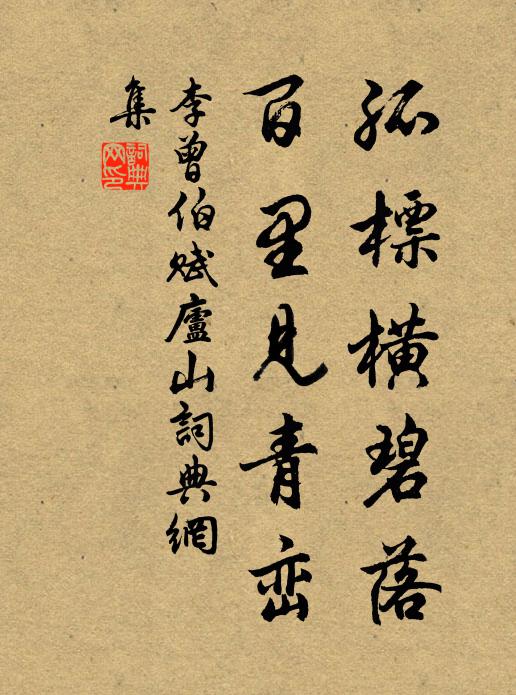 孤標橫碧落
百里見青峦
李曾伯賦廬山詞典網
集
詞典
网印